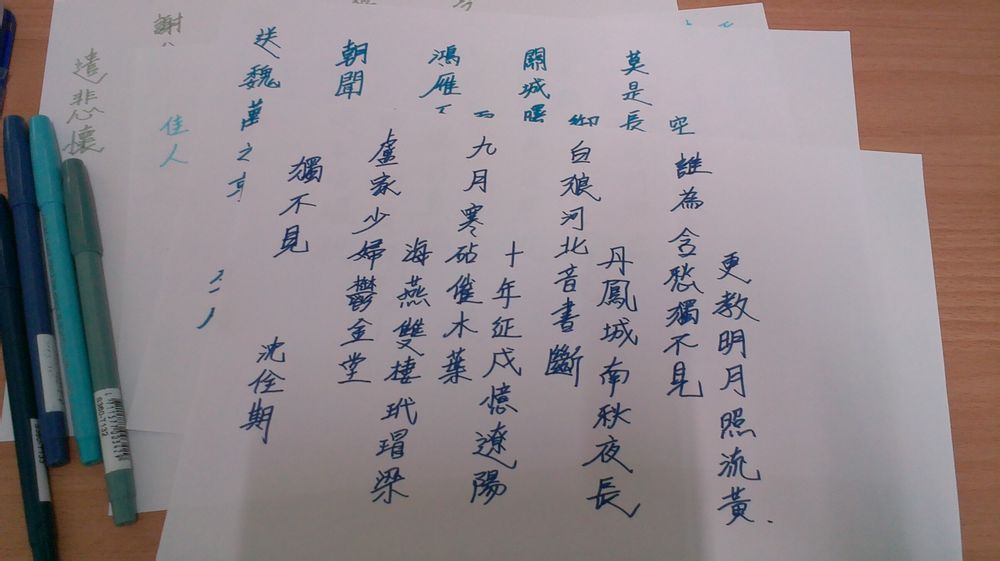 遣悲懷
謝
佳人
送魏萬之京
朝聞
鴻雁
關城曙
莫是長
獨不見
沈佺期
盧家少婦鬱金堂
海燕雙棲玳瑁梁
九月寒砧催木葉
十年征戍憶遼陽
白狼河北音書斷
丹鳳城南秋夜長
誰為含愁獨不見
更教明月照流黃.